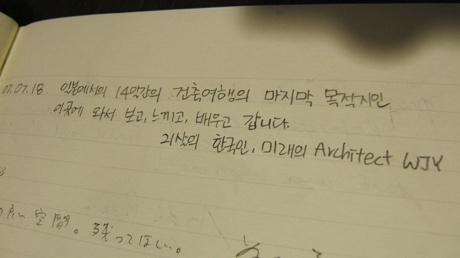 07.07.18 일본에서의 14박간의 건축여행의 마지막 목적지인
이곳에 와서 보고, 느끼고, 배우고 갑니다.
21살의 한국인, 미래의 Architect WJY
空間。残ってほしい。